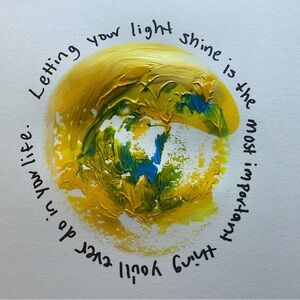 Letting your light shine is the most important thing you'll ever do in your life.